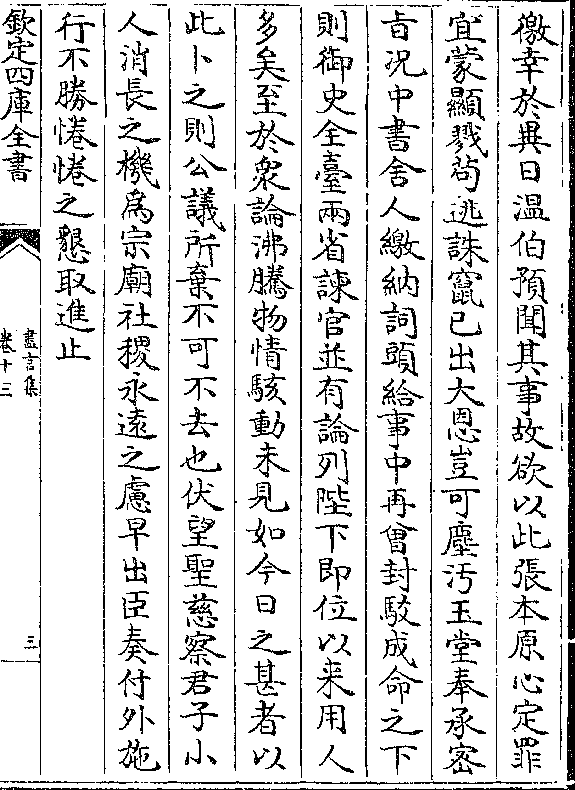 徼幸於異日溫伯預聞其事故欲以此張本原心定罪
宜蒙顯戮茍逃誅竄已出大恩豈可塵汚玉堂奉承宻
㫖况中書舍人繳納詞頭給事中再曾封駁成命之下
則御史全臺兩省諫官並有論列陛下即位以来用人
多矣至於衆論沸騰物情駭動未見如今日之甚者以
此卜之則公議所棄不可不去也伏望聖慈察君子小
人消長之機為宗廟社稷永遠之慮早出臣奏付外施
行不勝惓惓之懇取進止
欽定四庫全書
盡言集
卷十三
三